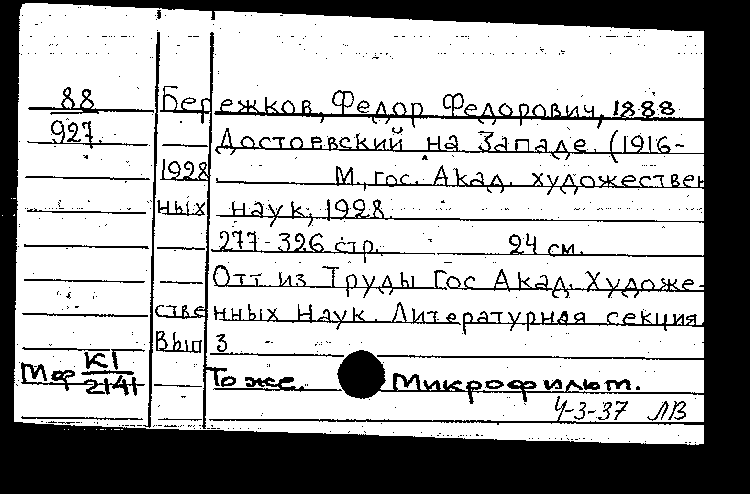 88 Бережков, Федор Федорович, 1888
927. Достоевский на Западе. (1916-
1928 М., гос. Акад. художествен
ных наук, 1928.
277-326 стр. 24 см.
Отт из Труды Гос Акад. Художе-
стве нных Наук. Литературная секция.
Вып 3
Мф К1 То же. Микрофильм.
2141
4-3-37 ЛВ